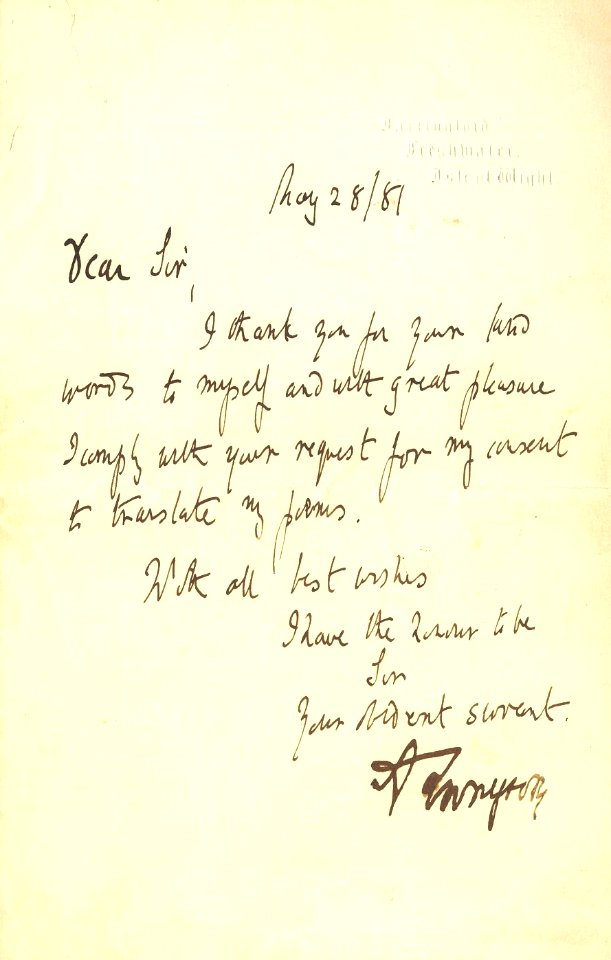 Farringford,
Freshwater,
Isle of Wight
May 28/81
Dear Sir,
I thank you for your kind
words to myself and with great pleasure
I comply with your request for my consent
to translate my poems.
With all best wishes
I have the honour to be
Sir
Your obedient servant.
A Tennyson